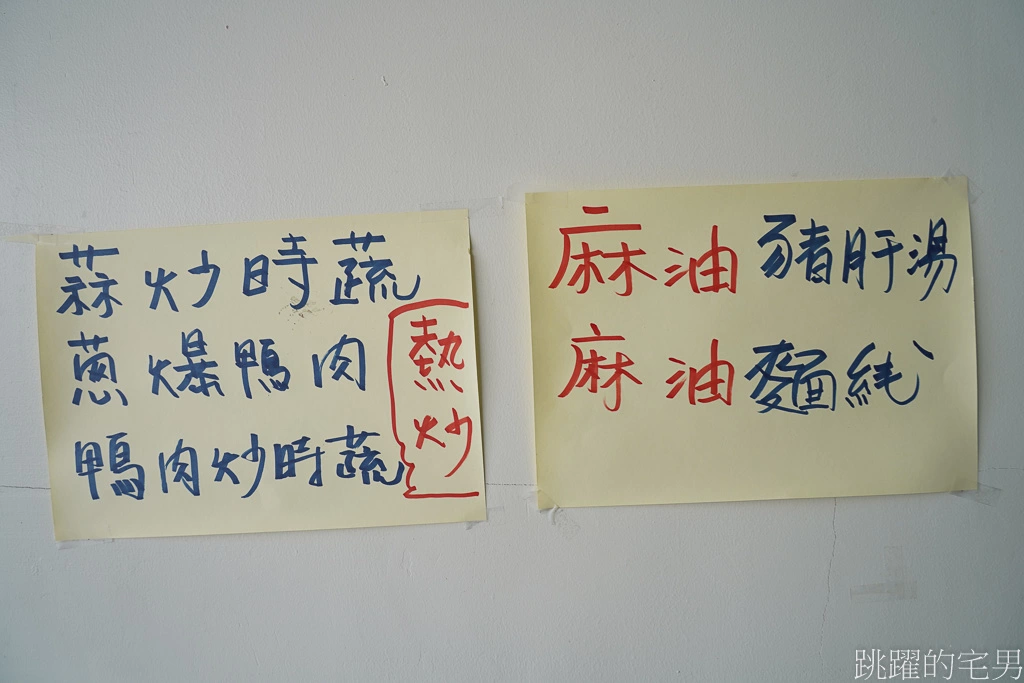 蒜炒時蔬
蔥爆鴨肉
鴨肉炒時蔬
熱炒
麻油豬肝湯
麻油麵線
跳躍的宅男